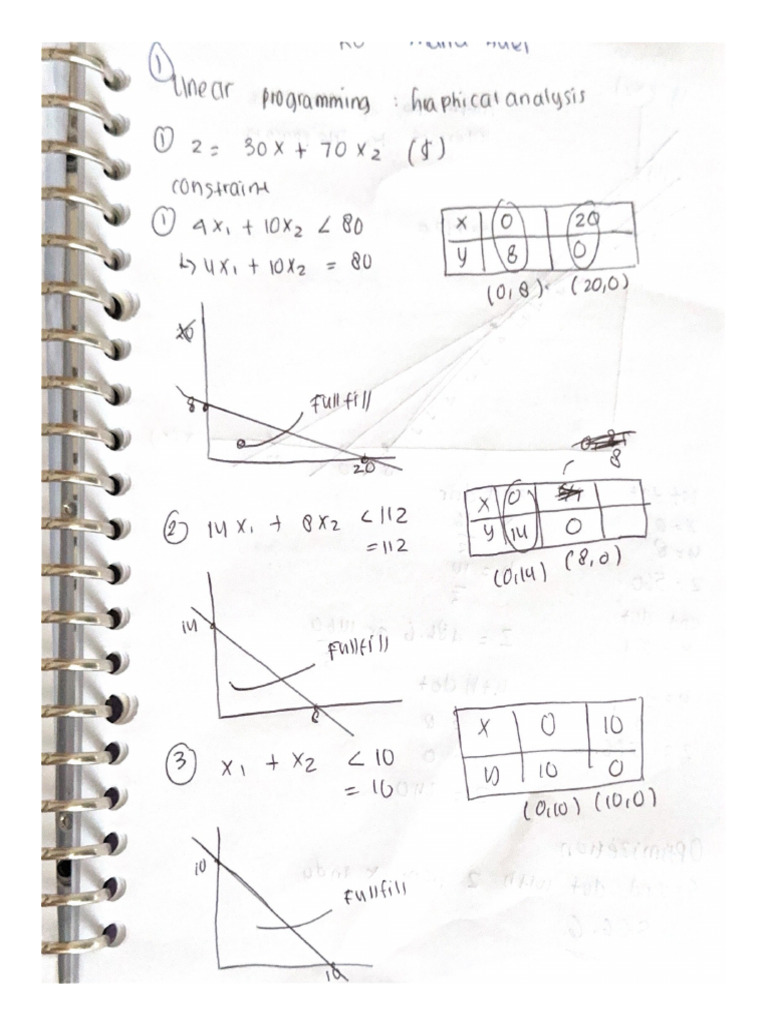 ①
Linear programming : Graphical analysis
① Z = 30X + 70X2 ($)
constraint
① 4X1 + 10X2 < 80
↳ 4X1 + 10X2 = 80
X | 0 | 20
y | 8 | 0
(0,8) (20,0)
8
Fullfill
20
8
② 14X1 + 8X2 < 112
= 112
X | 0
y | 14 | 0
(0,14) (8,0)
14
Fullfill
8
③ X1 + X2 < 10
= 10
X | 0 | 10
y | 10 | 0
(0,10) (10,0)
10
Fullfill
10